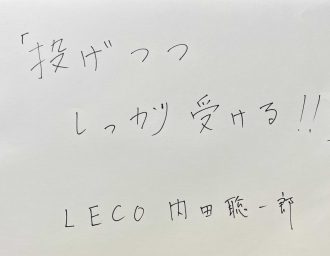 「投げつつ
しっかり受ける!!」
LECO 内田聡一郎